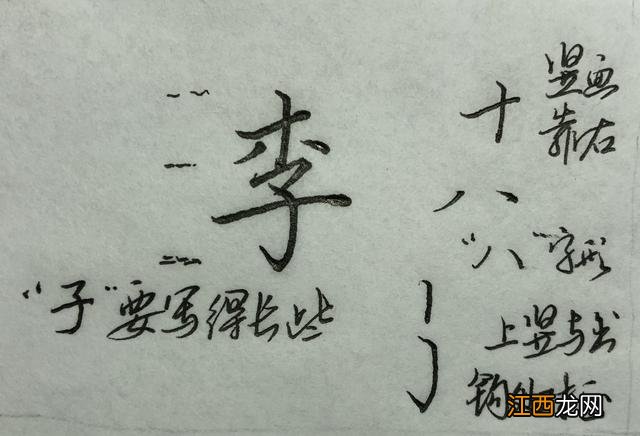 李
"子"要写得长些
十
竖画
靠右
八
"八"字形
上竖与出
江西龙网